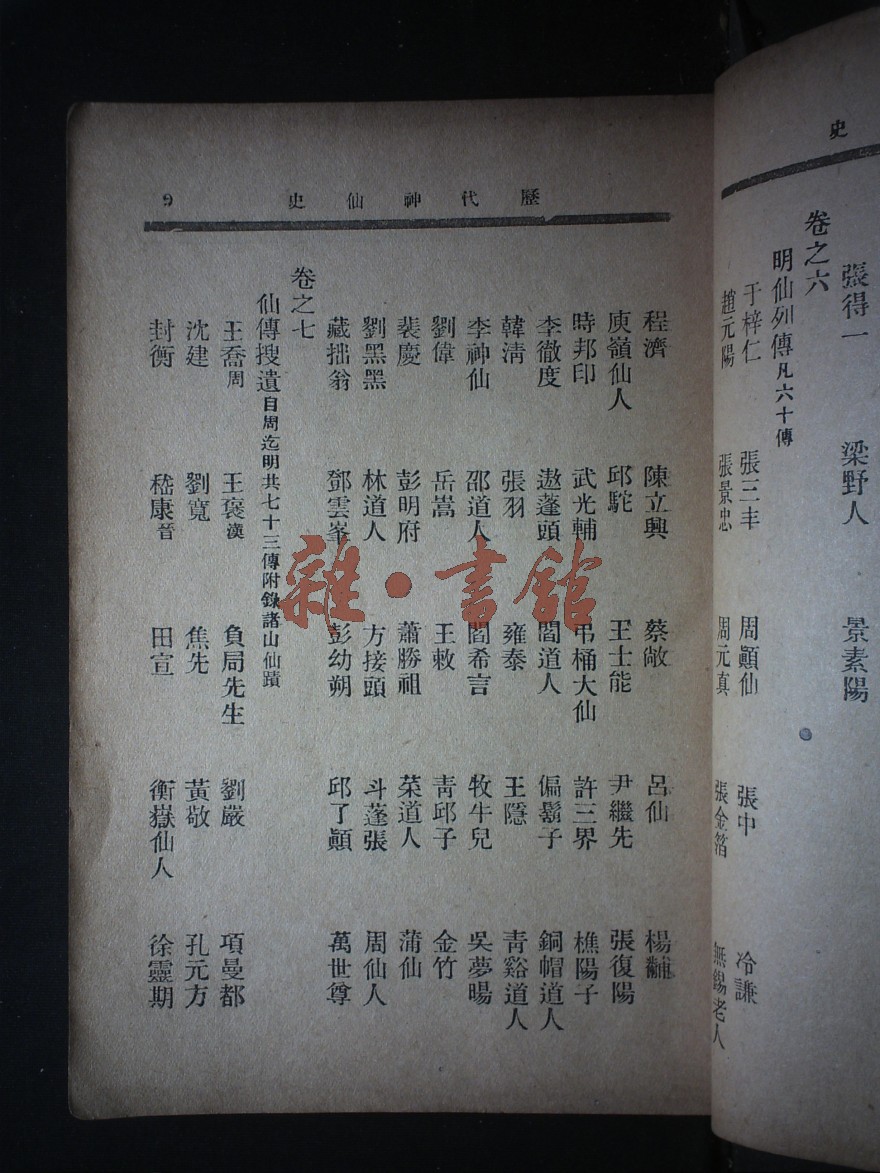 史
張得一　梁野人　景素陽
卷之六
明仙列傳凡六十傳
于梓仁　張三丰　周顚仙　張中　冷謙
趙元陽　張景忠　周元真　張金箔　無錫老人
歷代神仙史　9
程濟　陳立興　蔡敞　呂仙　楊黼
庾嶺仙人　邱駝　王士能　尹繼先　張復陽
時邦印　武光輔　弔桶大仙　許三界　樵陽子
李徹度　遨蓬頭　閻道人　偏鬎子　銅帽道人
韓淸　張羽　雍泰　王隱　靑谿道人
李神仙　邵道人　閻希言　牧牛兒　吳夢暘
劉偉　岳嵩　王敕　靑邱子　金竹
裴慶　彭明府　蕭勝祖　菜道人　蒲仙
劉黑黑　林道人　方接頭　斗蓬張　周仙人
藏拙翁　鄧雲峯　彭幼朔　邱了顚　萬世尊
卷之七
仙傳搜遺自周迄明共七十三傳附錄諸山仙蹟
王喬周　王褒漢　負局先生　劉嚴　項曼都
沈建　劉寬　焦先　黃敬　孔元方
封衡　嵇康晉　田宣　衡嶽仙人　徐靈期
雜·書館